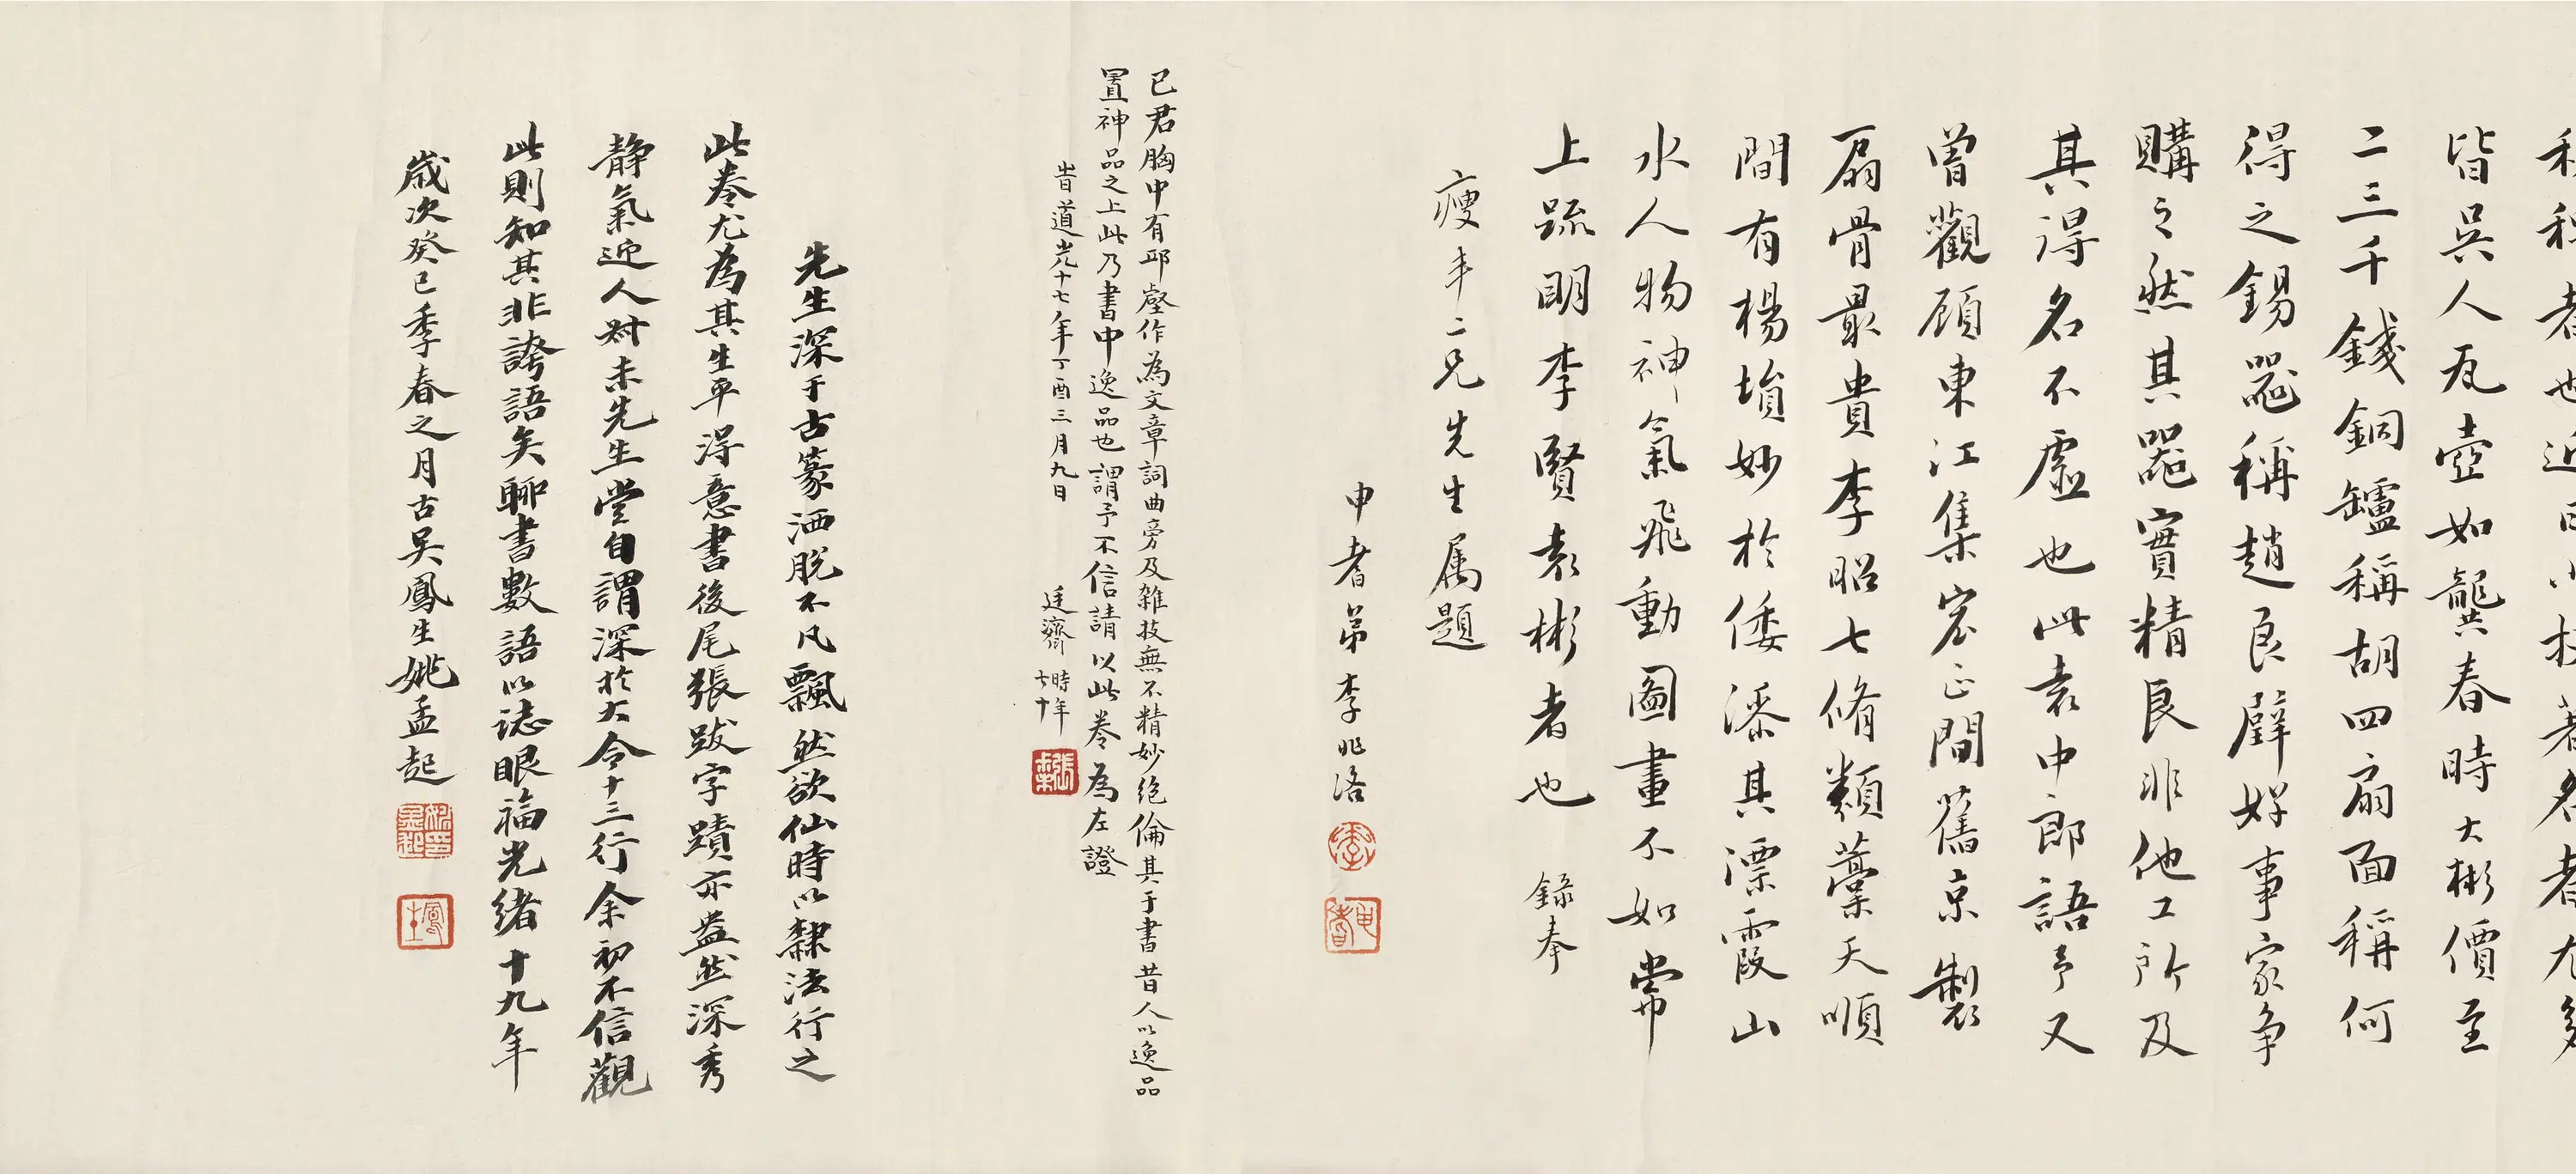 皆吳人瓦壺如龔春時大彬價至
二三千錢銅罏稱胡四扇面稱何
得之錫器稱趙良璧好事家爭
購之然其器實精良非他工所及
其得名不虛也此袁中郎語予又
曾觀顧東江集宏正間舊京製
扇骨最貴李昭七脩類藁天順
間有楊塤妙於倭漆其漂霞山
水人物神氣飛動圖畫不如嘗
上疏明李賢袁彬者也 錄奉
瘦丰二兄先生属題
申耆弟李兆洛
已君胸中有邱壑作為文章詞曲旁及雜技無不精妙絕倫其于書昔人以逸品
置神品之上此乃書中逸品也謂予不信請以此卷為左證
旹道光十七年丁酉三月九日 廷濟 時年七十
先生深于古篆洒脫不凡飄然欲仙時以隸法行之
此卷尤為其生平得意書後尾張跋字蹟亦盎然深秀
静氣近人尉未先生嘗自謂深於大令十三行余初不信觀
此則知其非誇語矣聊書數語以誌眼福光緒十九年
歲次癸巳季春之月古吳鳳生姚孟起